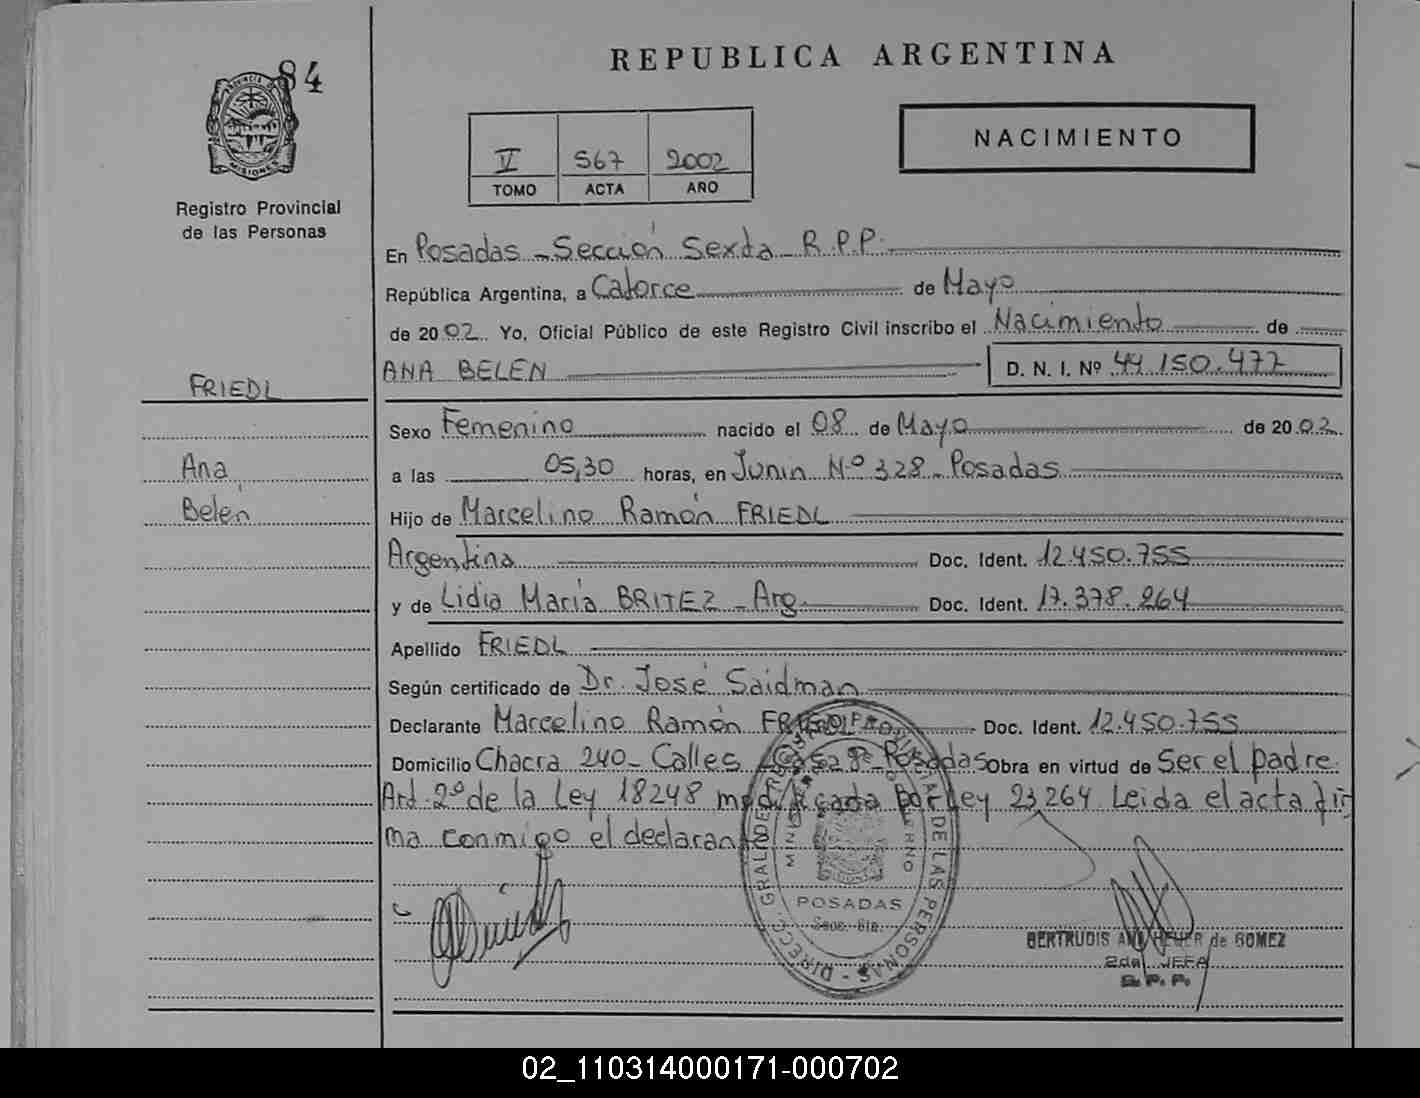 84
REPUBLICA ARGENTINA
PROVINCIA DE MISIONES
Registro Provincial
de las Personas
V 567 2002
TOMO ACTA AÑO
NACIMIENTO
En Posadas - Sección Sexta R.P.P.
República Argentina, a Catorce de Mayo
de 2002. Yo, Oficial Público de este Registro Civil inscribo el Nacimiento de
ANA BELEN D. N. I. Nº 44.150.477
FRIEDL
Sexo Femenino nacido el 08 de Mayo de 2002
Ana
a las 05,30 horas, en Junin Nº 328 - Posadas
Belén
Hijo de Marcelino Ramón FRIEDL
Argentina Doc. Ident. 12.450.755
y de Lidia María BRITEZ - Arg. Doc. Ident. 17.378.264
Apellido FRIEDL
Según certificado de Dr. José Saidman
Declarante Marcelino Ramón FRIEDL Doc. Ident. 12.450.755
Domicilio Chacra 240 - Calles Posadas Obra en virtud de Ser el padre.
Art. 2º de la Ley 18248 modificada por Ley 23264. Leida el acta fir
ma conmigo el declarante
DIRECC. GRAL. DE REG. PROVINCIAL DE LAS PERSONAS
POSADAS
Secc. 6ta.
BERTRUDIS de GOMEZ
2da JEFA
R.P.P.
02_110314000171-000702